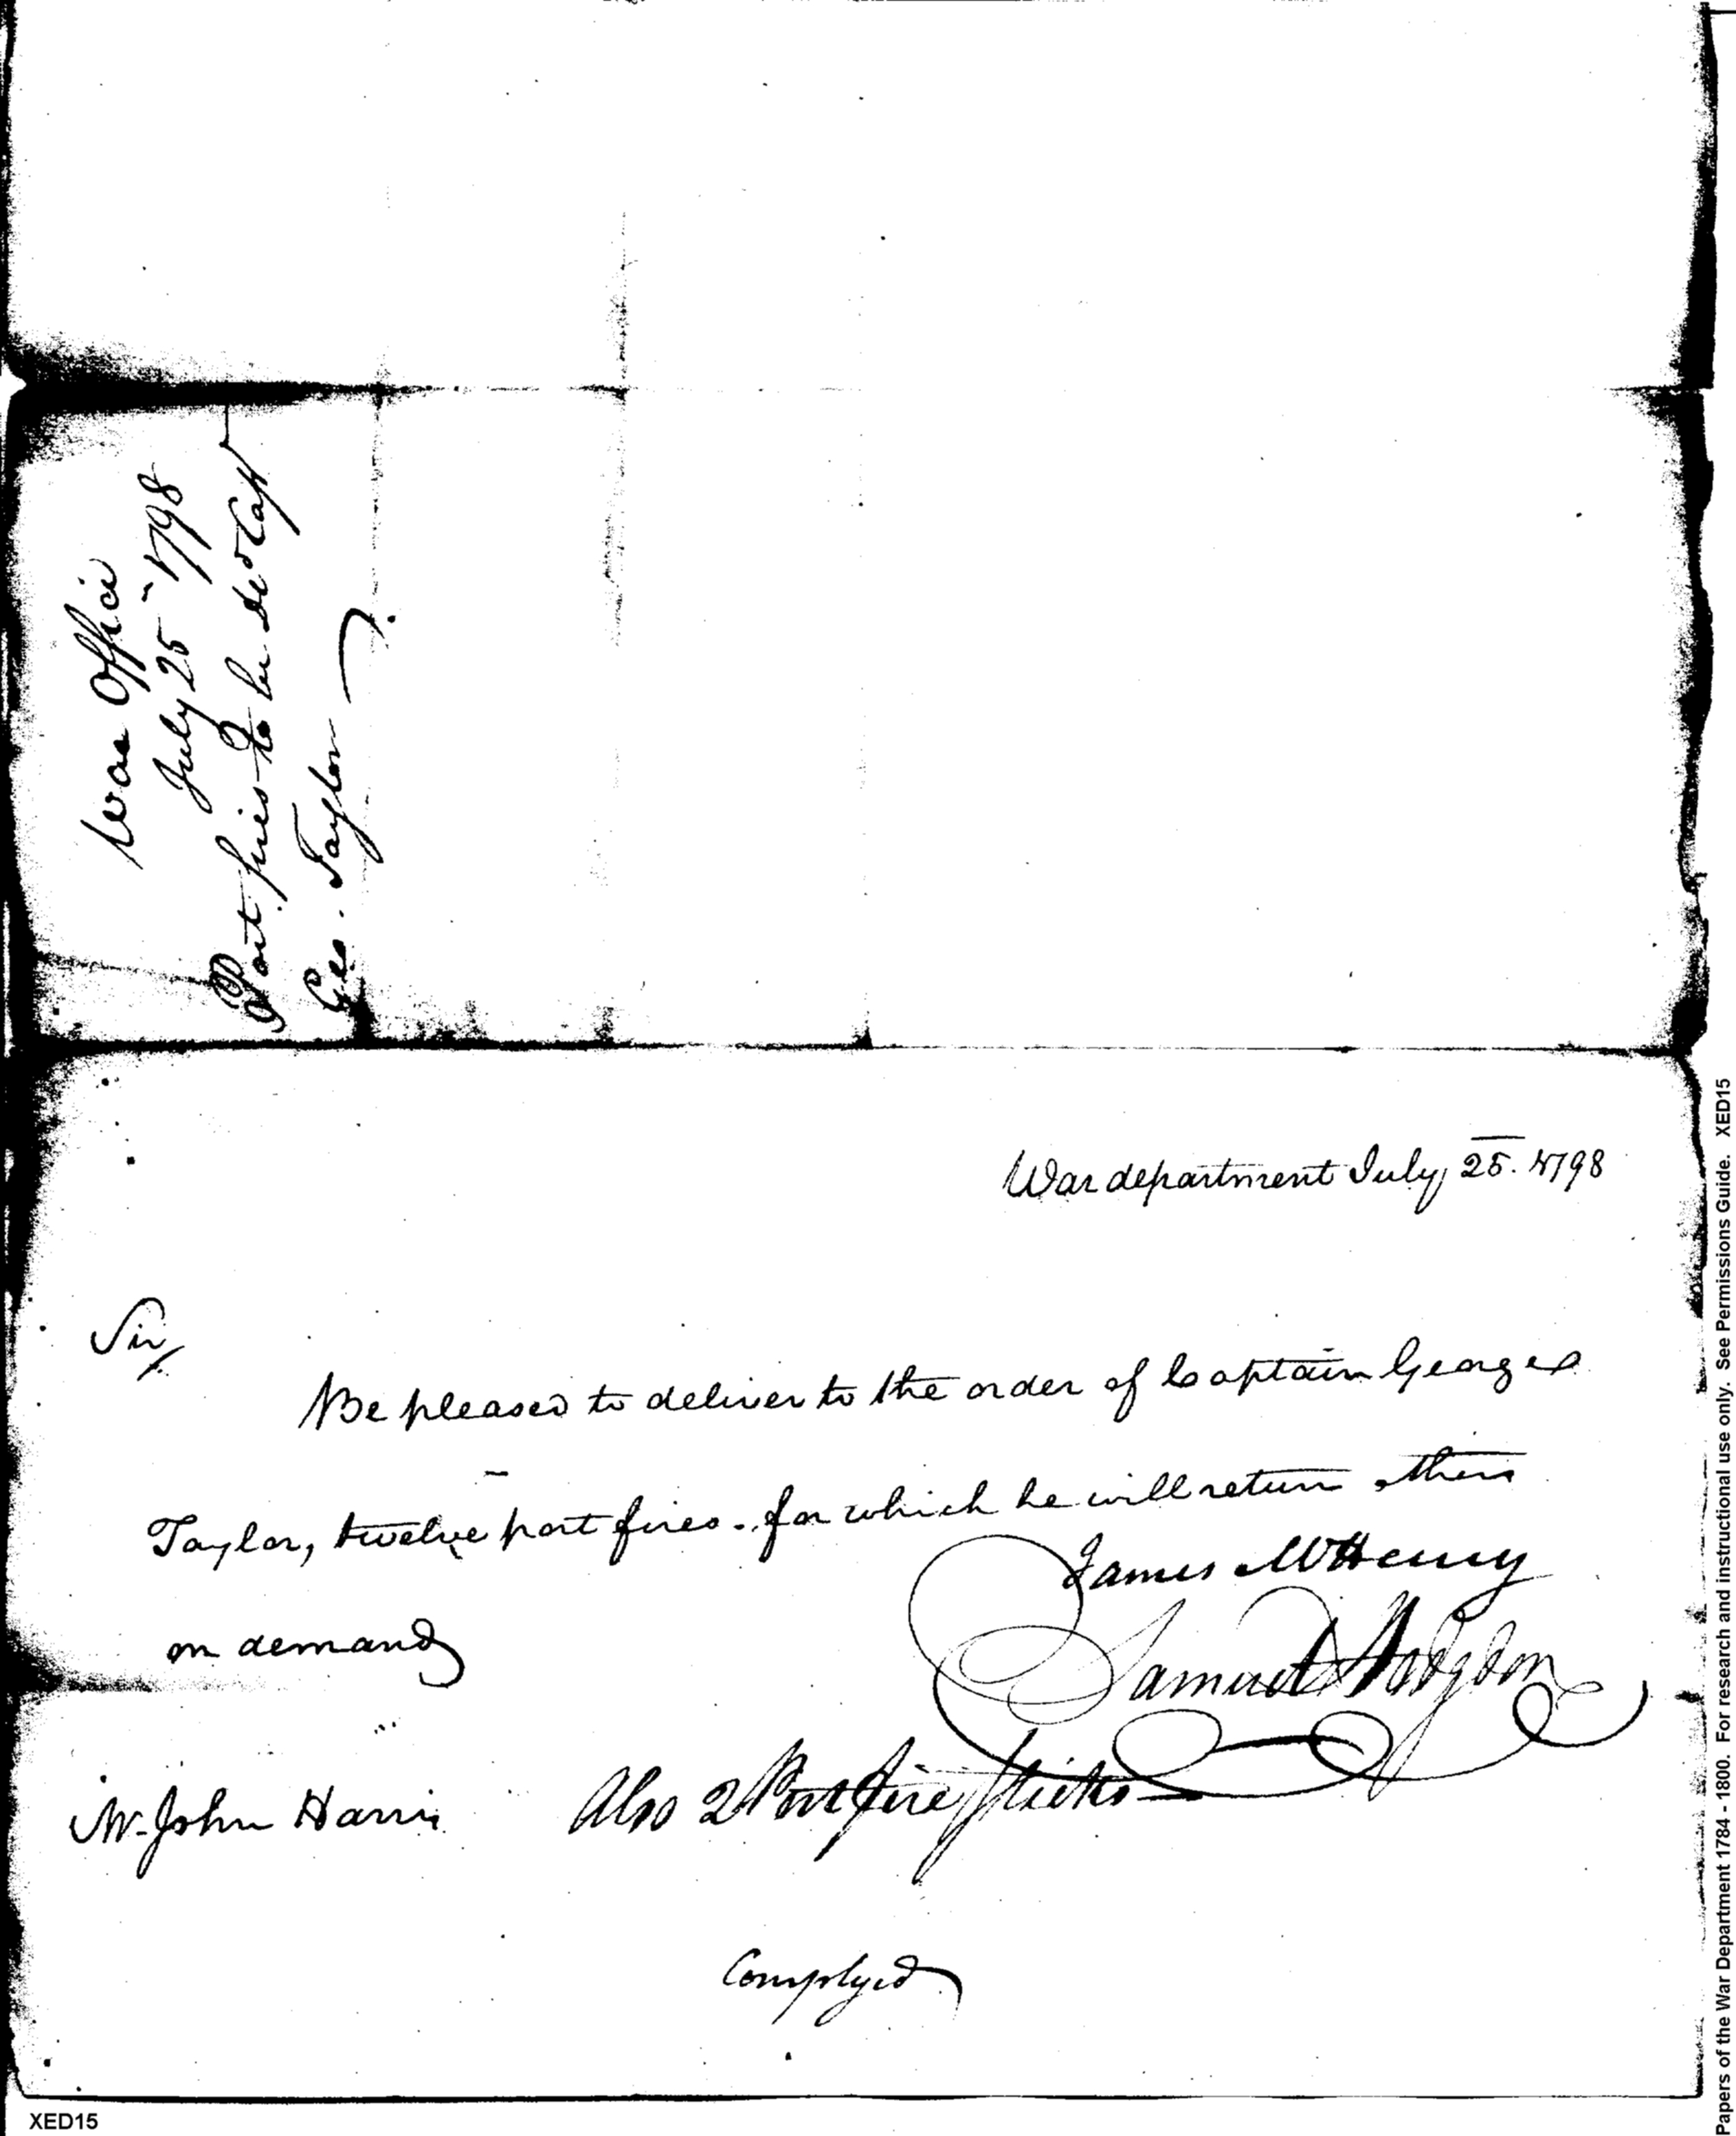 War Office
July 25 - 1798
Port fires to be del'd Capt
Geo. Taylor
War department July 25. 1798
Sir,
Be pleased to deliver to the order of Captain George
Taylor, twelve port fires. for which he will return others
on demand
James McHenry
Samuel Hodgdon
Mr. John Harris
Also 2 Port fire Sticks
Complyed
XED15
Papers of the War Department 1784 - 1800. For research and instructional use only. See Permissions Guide. XED15